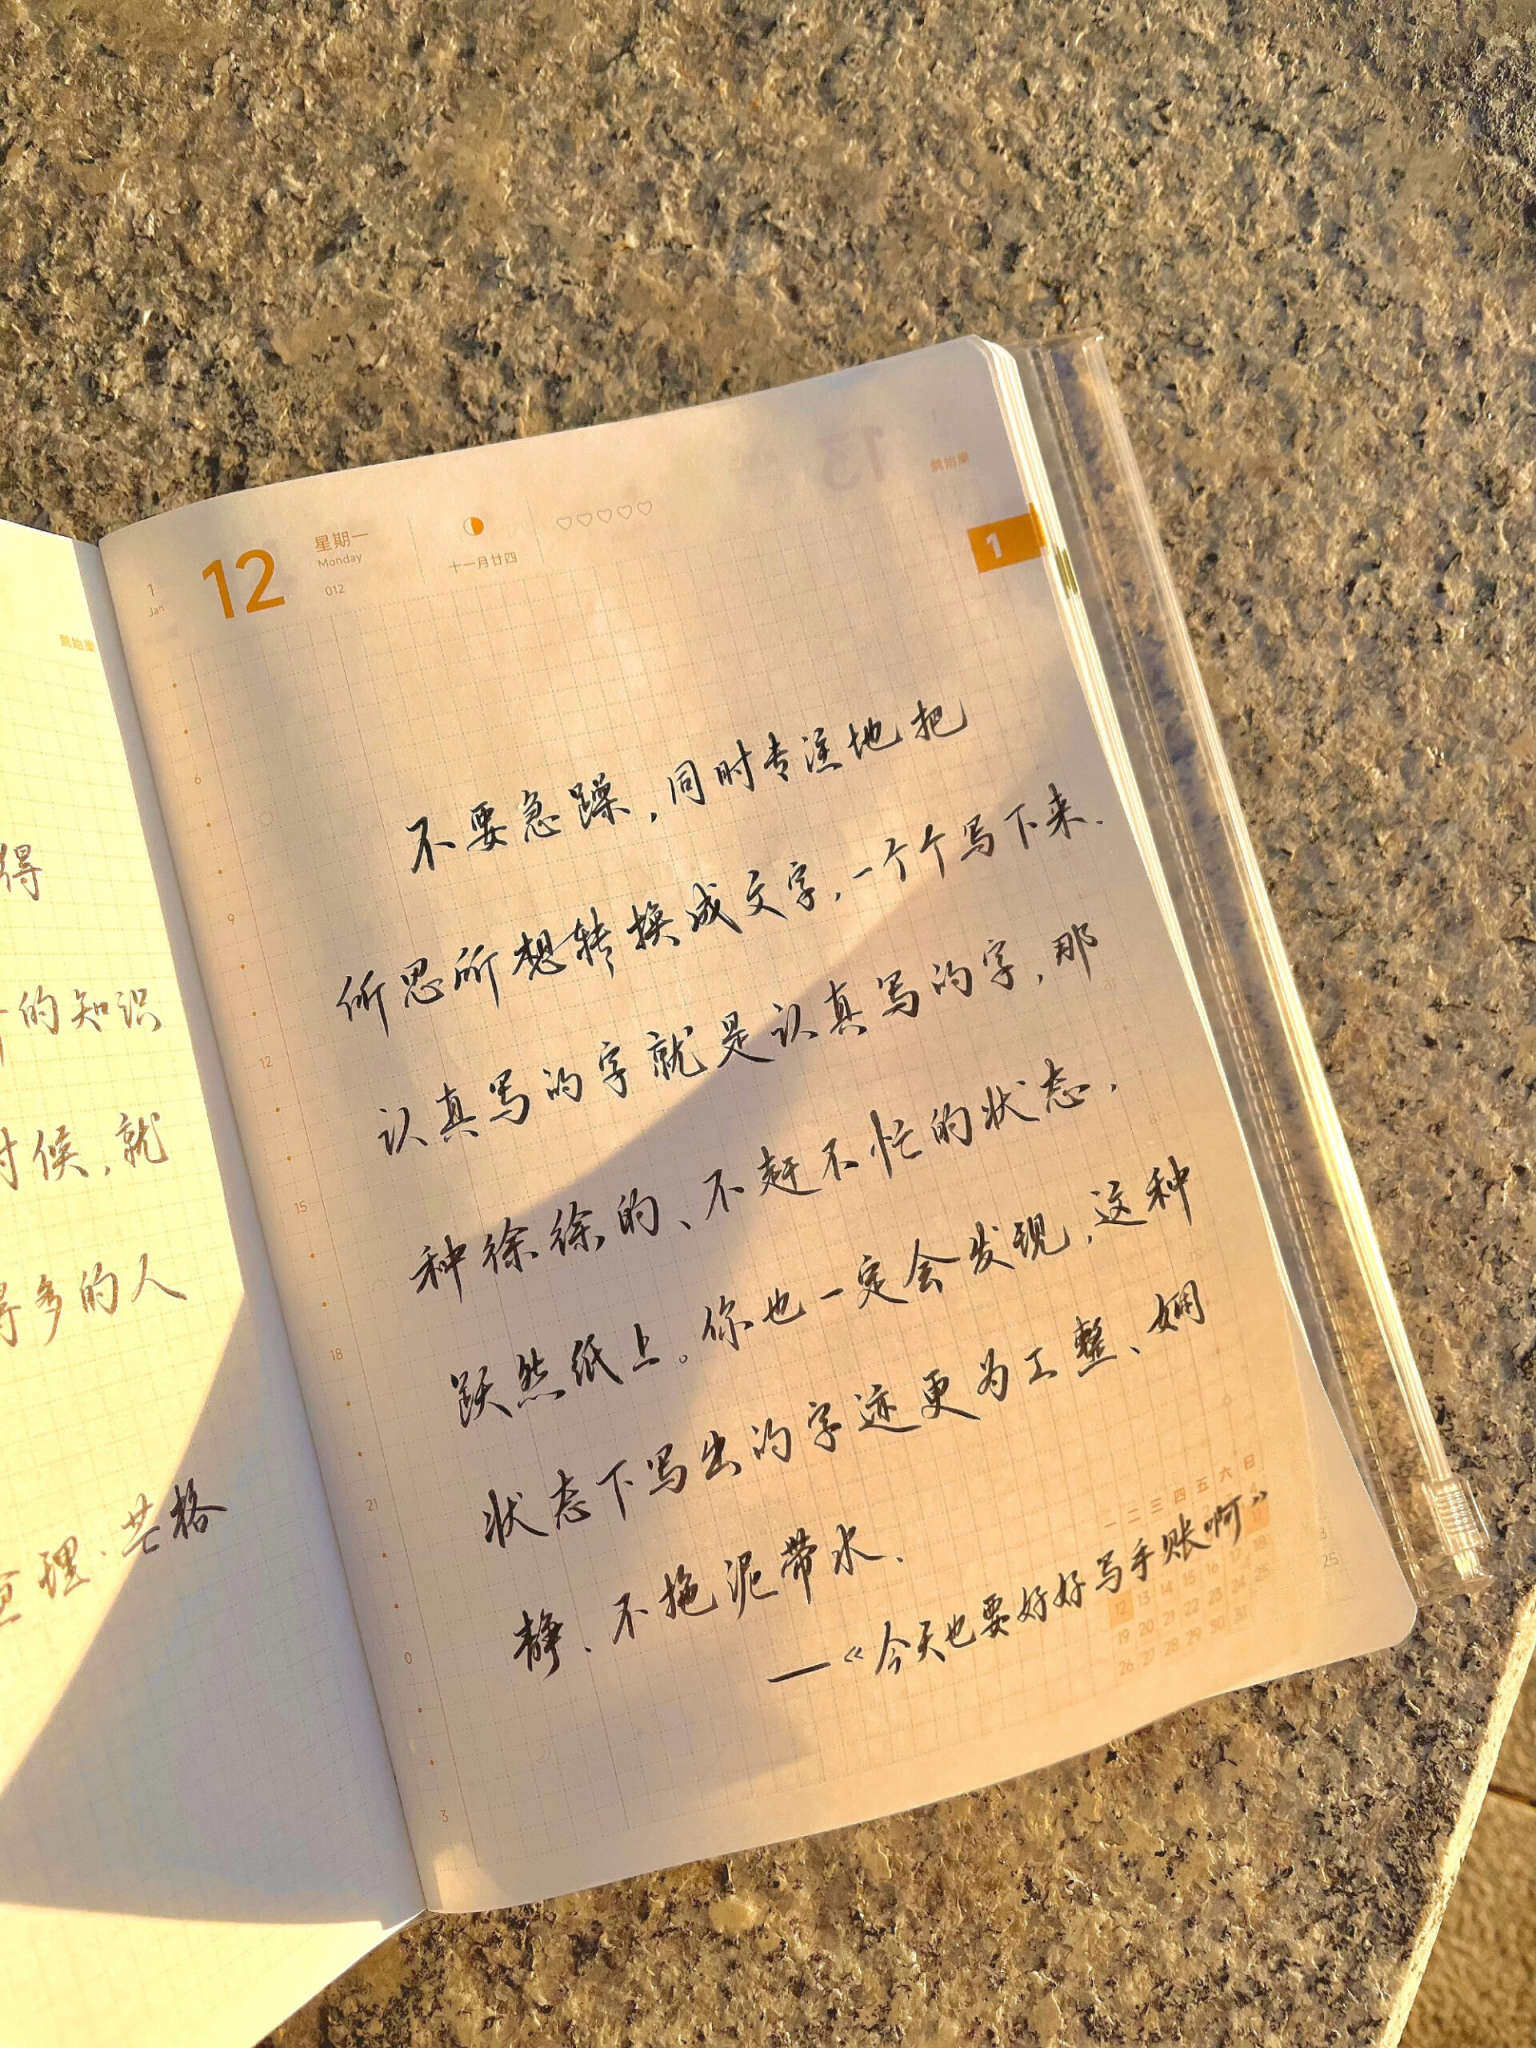 得
的知识
时候,就
得多的人
理、芸格
1
Jan
12
星期一
Monday
012
十一月廿四
1
不要急躁,同时专注地把
所思所想转换成文字,一个个写下来.
认真写的字就是认真写的字,那
种徐徐的、不赶不忙的状态,
跃然纸上。你也一定会发现,这种
状态下写出的字迹更为工整、娴
静、不拖泥带水.
——《今天也要好好写手账啊》
6
9
12
15
18
21
0
3
一 二 三 四 五 六 日
12 13 14 15 16 17 18
19 20 21 22 23 24 25
26 27 28 29 30 31